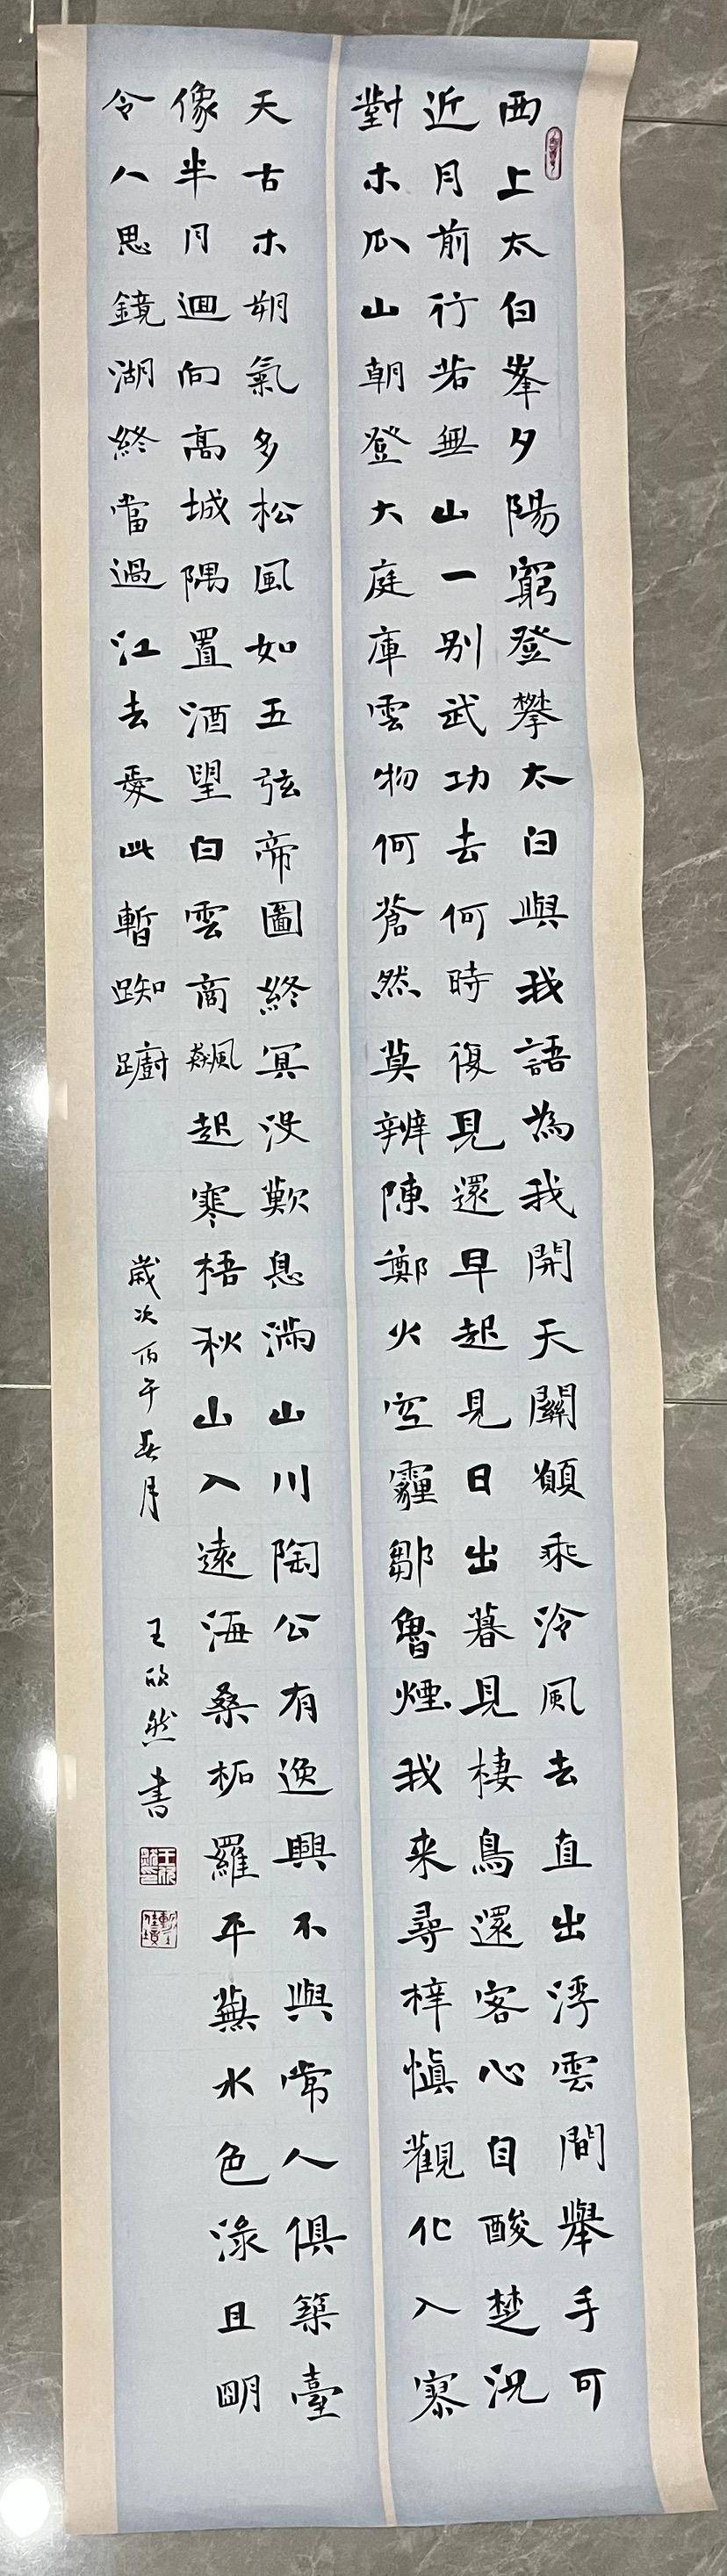 西上太白峯夕陽窮登攀太白與我語為我開天關願乘泠風去直出浮雲間舉手可
近月前行若無山一別武功去何時復見還早起見日出暮見棲鳥還客心自酸楚況
對木瓜山朝登大庭庫雲物何蒼然莫辨陳鄭火空霾鄒魯煙我來尋梓慎觀化入寥
天古木朔氣多松風如五弦帝圖終冥沒歎息滿山川陶公有逸興不與常人俱築臺
像半月迴向高城隅置酒望白雲商飆起寒梧秋山入遠海桑柘羅平蕪水色淥且明
令人思鏡湖終當過江去愛此暫踟躕
歲次丙午春月
王欣然書